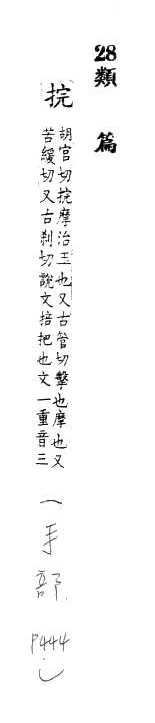 28類篇
捖
胡官切捖摩治玉也又古管切擊也摩也又
苦緩切又古刹切說文掊把也文一重音三
一手部
P444